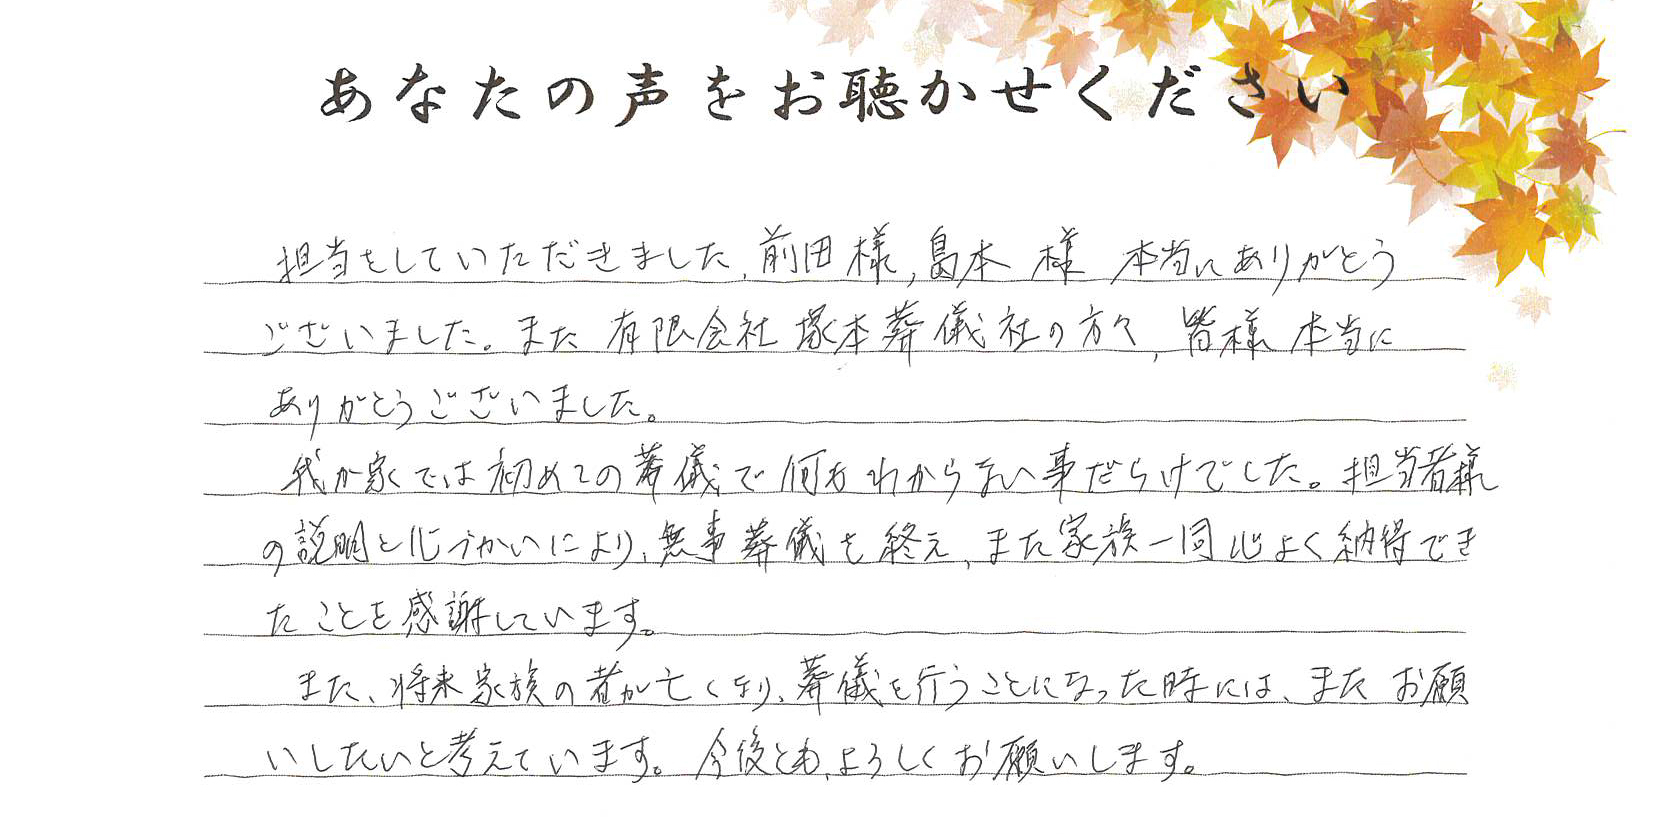 あなたの声をお聴かせください
担当をしていただきました、前田様、島本様 本当にありがとう
ございました。また 有限会社 塚本葬儀社の方々、皆様 本当に
ありがとうございました。
我が家では初めての葬儀で何もわからない事だらけでした。担当者様
の説明と心づかいにより、無事葬儀を終え、また家族一同心よく納得でき
たことを感謝しています。
また、将来家族の者が亡くなり、葬儀を行うことになった時には、またお願
いしたいと考えています。今後とも、よろしくお願いします。